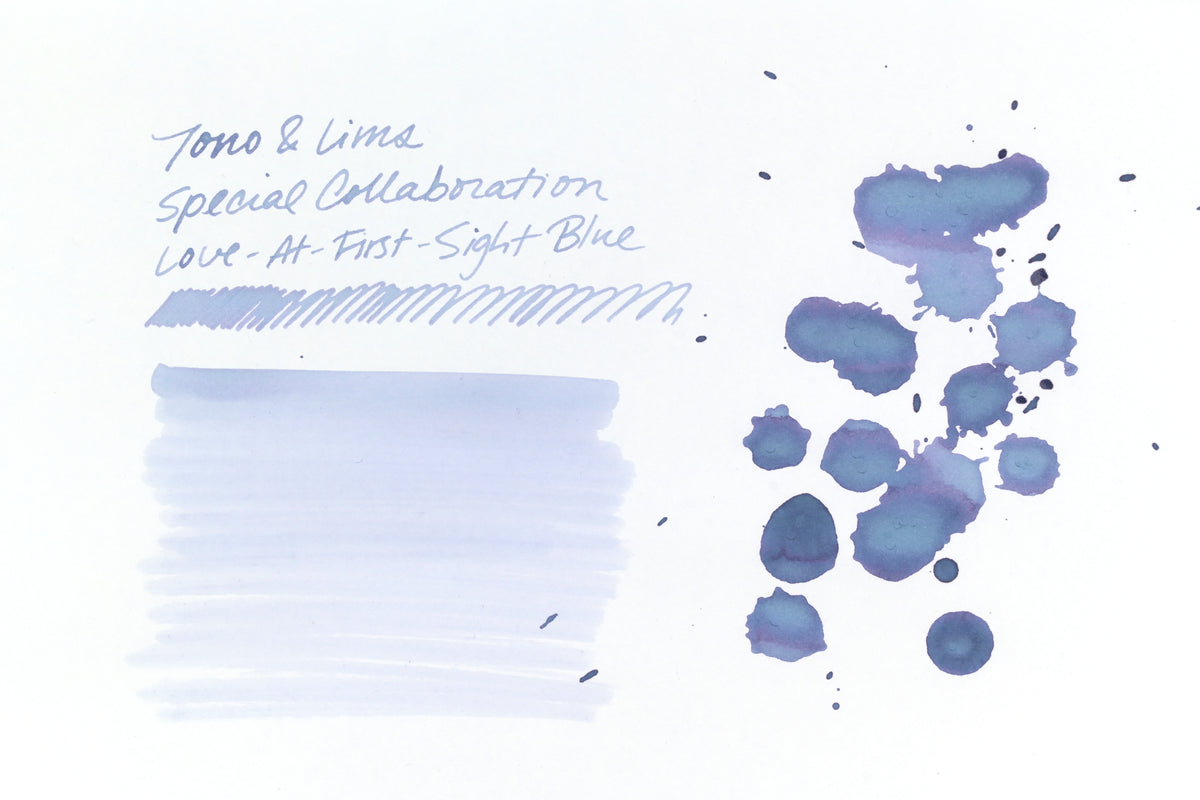 Tono & Lims
Special Collaboration
Love-At-First-Sight Blue